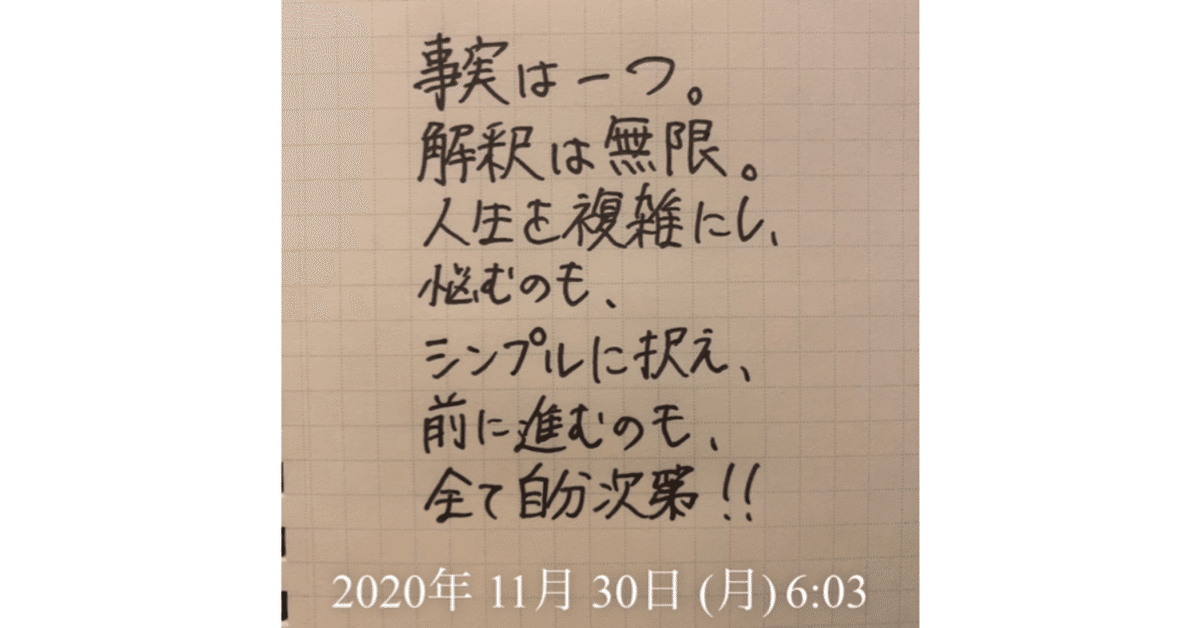 事実は一つ。
解釈は無限。
人生を複雑にし、
悩むのも、
シンプルに択え、
前に進むのも、
全て自分次第!!
2020年 11月 30日 (月) 6:03